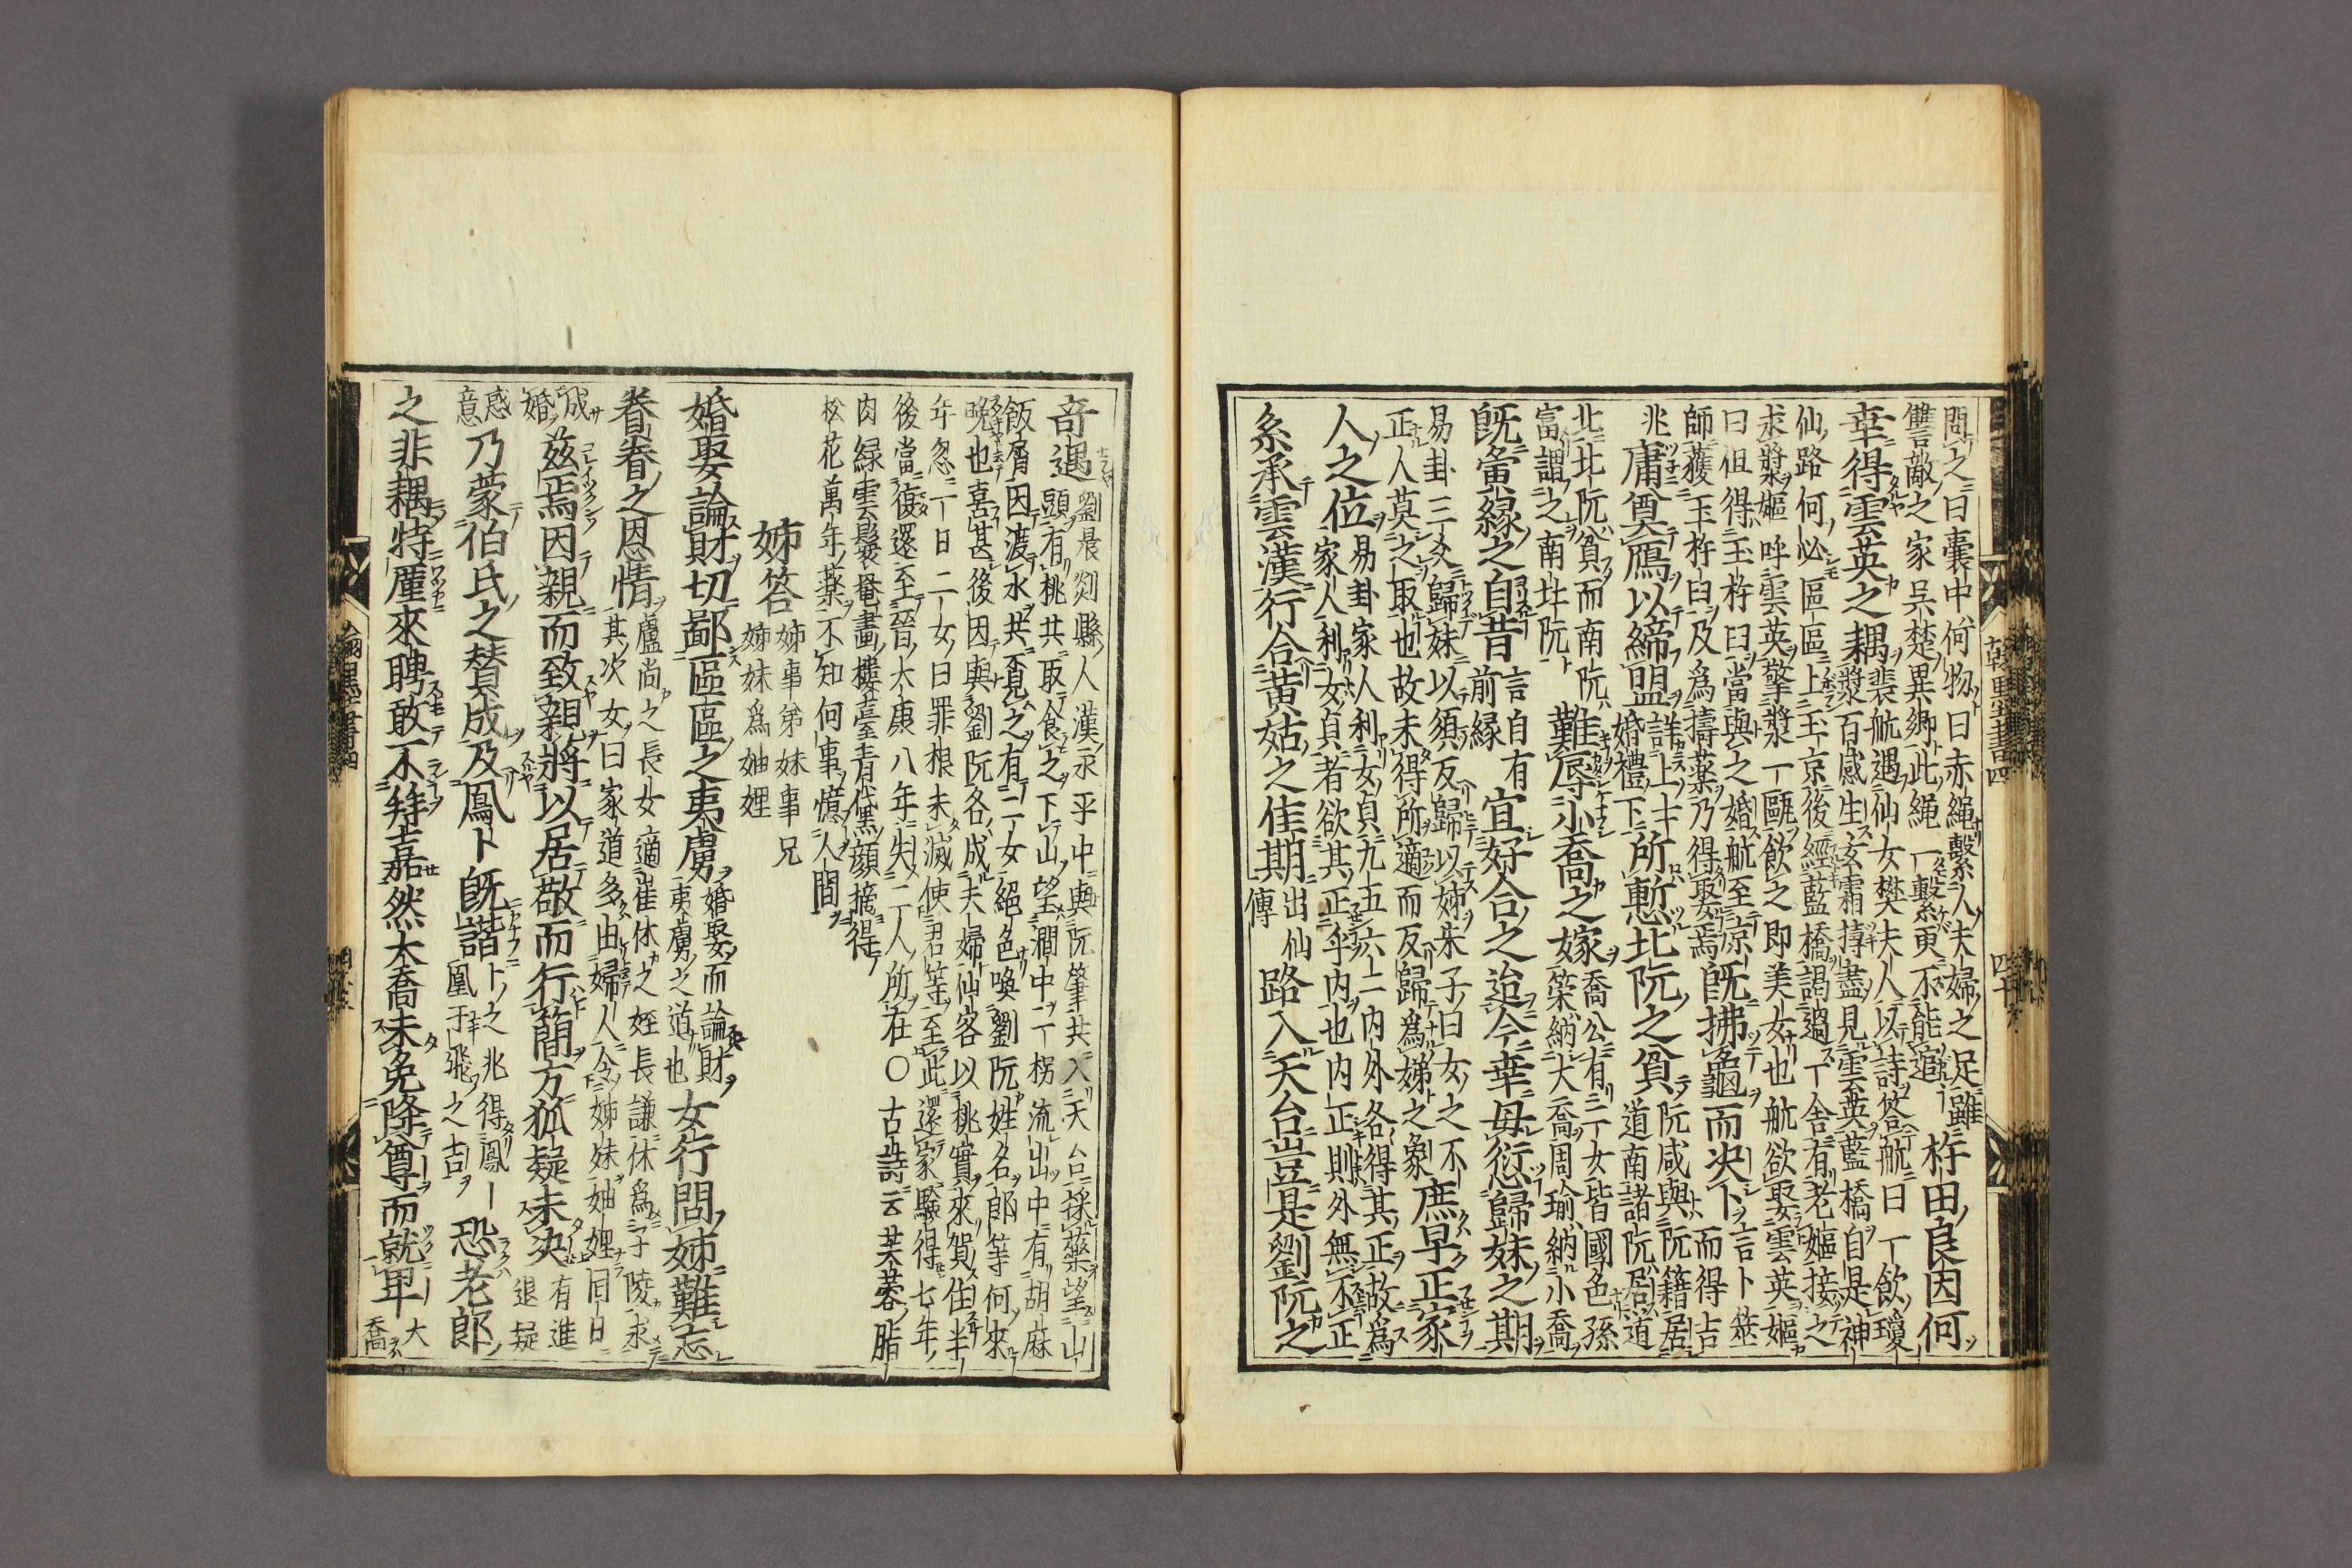 問之曰囊中何物曰赤繩繫人夫婦之足雖
讐敵之家呉楚異鄉此繩一繫更不能逭
杵田良因何
幸得雲英之耦
裴航遇仙女樊夫人以詩答航曰一飲瓊
漿百感生玄霜擣盡見雲英藍橋自是神
仙路何必區區上玉京後經藍橋謁過一舍有老嫗接之
求漿嫗呼雲英擎漿一甌飲之即美女也航欲娶雲英嫗
曰但得玉杵臼當與之婚航至京
師獲玉杵臼及為擣藥乃得娶焉
既拂龜而决卜
言卜筮
而得吉
兆
庸奠鴈以締盟
詳上
婚禮下
所慙北阮之貧
阮咸與阮籍居
道南諸阮居道
北北阮貧而南阮
富謂之南北阮
難辱小喬之嫁
喬公有二女皆國色孫
策納大喬周瑜納小喬
既夤緣之自昔
言自有
前緣
宜好合之迨今幸毋愆歸妹之期
易卦三爻歸妹以須反歸以姊朱子曰女之不
正人莫之取也故未得所適而反歸為娣之象
庶早正家
人之位
易卦家人利女貞九五六二内外各得其正故為
家人利女貞者欲其正乎内也内正則外無不正
系承雲漢行合黃姑之佳期
出仙
傳
路入天台豈是劉阮之
奇遇
劉晨剡縣人漢永平中與阮肇共入天台採藥望山
頭有桃共取食之下山望澗中一杯流出中有胡麻
飯屑因渡水共覔之有二女絕色喚劉阮姓名郎等何來
晚也喜甚後因與劉阮各成夫婦仙客以桃實來賀住半
年忽一日二女曰罪根未滅使君等至此還家驗得七年
後當復還至晉太康八年失二人所在〇古詩云芙蓉脂
肉緑雲鬟罨畫樓臺青黛顏摘得
松花萬年藥不知何事憶人間
姊答
姊事弟妹事兄
姊妹為妯娌
婚娶論財切鄙區區之夷虜
婚娶而論財
夷虜之道也
女行問姊難忘
眷眷之恩情
盧尚之長女適崔休之姪長謙休為子陵求
其次女曰家道多由婦人令姊妹妯娌同日
成
婚
茲焉因親而致親將以居敬而行簡方狐疑未决
有進
退疑
惑
意
乃蒙伯氏之賛成及鳳卜既諧
卜之兆得鳳
凰于飛之吉
恐老郎
之非耦特厪來聘敢不拜嘉然大喬未免降尊而就卑
大
喬